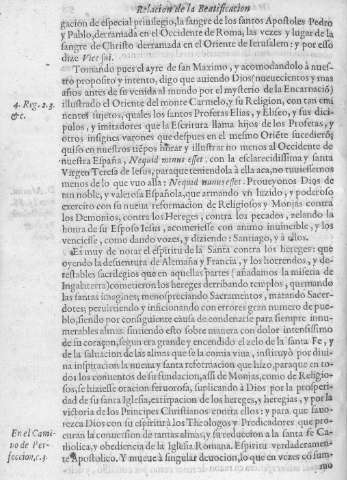 Relacion de la Beatificacion
gacion de especial priuilegio, la sangre de los santos Apostoles Pedro
y Pablo, derramada en el Occidente de Roma, las vezes y lugar de la
sangre de Christo derramada en el Oriente de Ierusalem: y por esso
dize Vice sui.
Tomando pues el ayre de san Maximo, y acomodandolo à nuestro
proposito y intento, digo que auiendo Dios (nueuecientos y mas
años antes de su venida al mundo por el mysterio de la Encarnaciõ)
4. Reg. 2. 3.
&c.
illustrado el Oriente del monte Carmelo, y su Religion, con tan eminentes
sujetos, quales los santos Profetas Elias, y Eliseo, y sus discipulos,
y imitadores que la Escritura llama hijos de los Profetas, y
otros insignes varones que despues en el mesmo Oriẽte sucedierõ;
quiso en nuestros tiẽpos honrar y illustrar no menos al Occidente de
nuestra España, Nequid minus esset. con la esclarecidissima y santa
Virgen Teresa de Iesus, paraque teniendola à ella aca, no tuuiessemos
menos de lo que vuo alla: Nequid minus esset. Proueyonos Dios de
tan noble, y valerosa Española, que armando vn luzido, y poderoso
exercito con su nueua reformacion de Religiosos y Monjas contra
los Demonios, contra los Hereges, contra los pecados, zelando la
honra de su Esposo Iesus, acometiesse con animo inuincible, y los
venciesse, como dando vozes, y diziendo: Santiago, y à ellos.
Es muy de notar el espiritu de la Santa contra los hereges: que
oyendo la desuentura de Alemaña y Francia, y los horrendos, y detestables
sacrilegios que en aquellas partes (añadamos la miseria de
Ingalaterra) cometieron los hereges derribando templos, quemando
las santas imagines, menospreciando Sacramentos, matando Sacerdotes;
peruirtiendo y inficionando con errores gran numero de pueblo,
siendo por consiguiente causa de condenarse para siempre innumerables
almas: sintiendo esto sobre manera con dolor intentissimo
de su coraçon, segun era grande y encendido el zelo de la santa Fe, y
de la saluacion de las almas que se la comia viua, instituyò por diuina
inspiracion la nueua y santa reformacion que hizo, paraque en todos
los conuentos de su fundacion, assi de Monjas, como de Religiosos,
se hiziesse oracion feruorosa, suplicando à Dios por la prosperidad
de su santa Iglesia, extirpacion de los hereges, y heregias, y por la
victoria de los Principes Christianos contra ellos: y para que fauorezca
Dios con su espiritu à los Theologos y Predicadores que procuran
En el Camino
de Perfeccion,
c. 3.
la conuersion de tantas almas, y su reduccion a la santa fe Catholica,
y obediencia de la Iglesia Romana. Espiritu verdaderamente
Apostolico. Y mueue à singular deuocion, lo que en vezes co